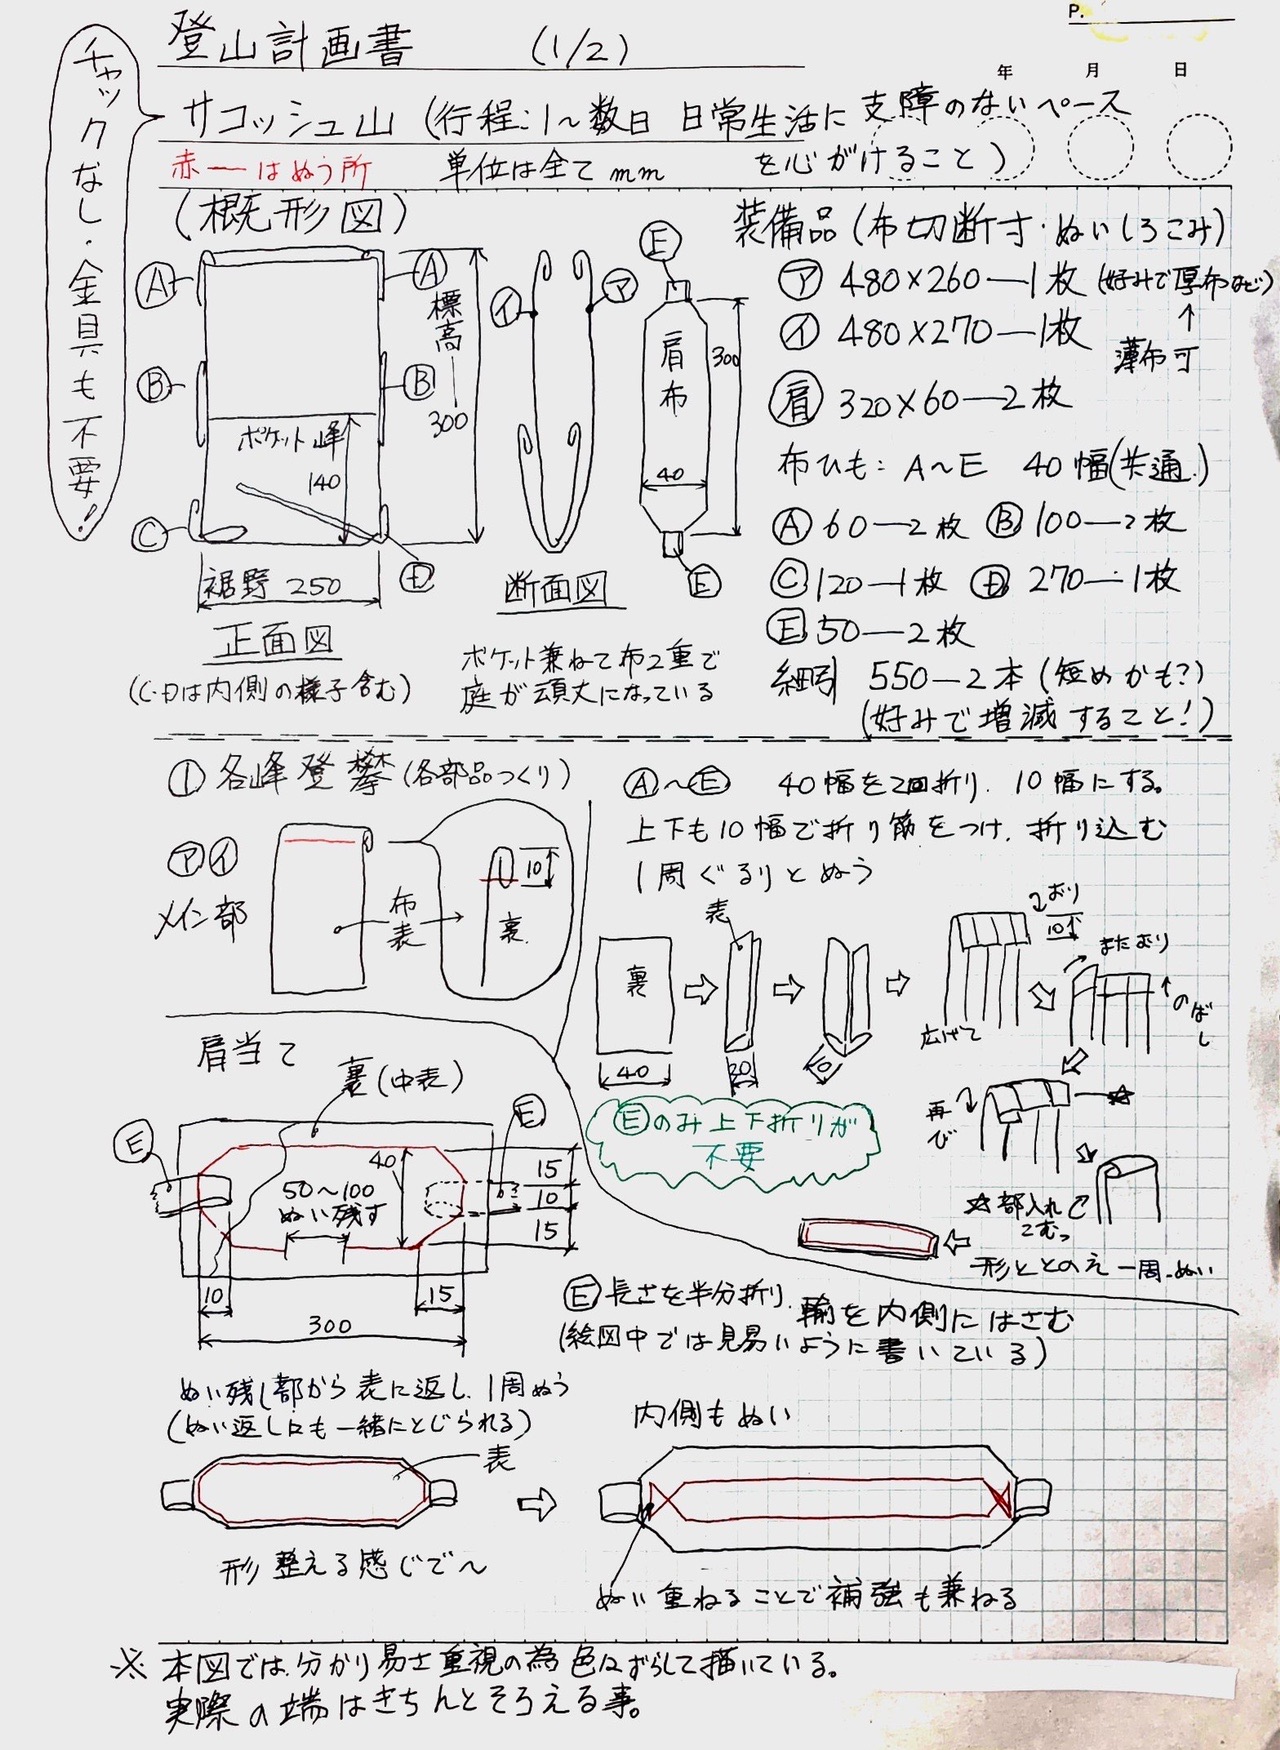 P.
登山計画書 (1/2)
年 月 日
チャックなし・金具も不要!
サコッシュ山 (行程:1〜数日 日常生活に支障のないペース
を心がけること)
赤―はぬう所 単位は全てmm
(概形図)
Ⓐ
Ⓐ
Ⓑ
Ⓑ
Ⓒ
Ⓓ
標高 300
ポケット峰
140
裾野 250
正面図
(C・Dは内側の様子含む)
㋑
㋐
断面図
ポケット兼ねて布2重で
庭が頑丈になっている
Ⓔ
肩布
300
40
Ⓔ
装備品 (布切断寸・ぬいしろこみ)
㋐ 480×260―1枚 (好みで厚布など)
↑
薄布可
㋑ 480×270―1枚
肩 320×60―2枚
布ひも: A〜E 40幅(共通)
Ⓐ 60―2枚 Ⓑ 100―2枚
Ⓒ 120―1枚 Ⓓ 270―1枚
Ⓔ 50―2枚
細引 550―2本 (短めかも?)
(好みで増減すること!)
① 各峰登攀 (各部品つくり)
㋐㋑
メイン部
布表
裏
10
Ⓐ〜Ⓔ 40幅を2回折り. 10幅にする。
上下も10幅で折り筋をつけ. 折り込む
1周ぐるりとぬう
裏
40
表
20
10
広げて
おり
10
またおり
のばし
再び
☆
☆部入れこむっ
形ととのえ一周ぬい
Ⓔのみ上下折りが
不要
肩当て
裏(中表)
Ⓔ
Ⓔ
40
50〜100
ぬい残す
15
10
15
10
15
300
Ⓔ長さを半分折り. 輪を内側にはさむ
(絵図中では見易いように書いている)
ぬい残し部から表に返し. 1周ぬう
(ぬい返し口も一緒にとじられる)
表
形整える感じで〜
内側もぬい
ぬい重ねることで補強も兼ねる
※ 本図では. 分かり易さ重視の為色はずらして描いている。
実際の端はきちんとそろえる事。